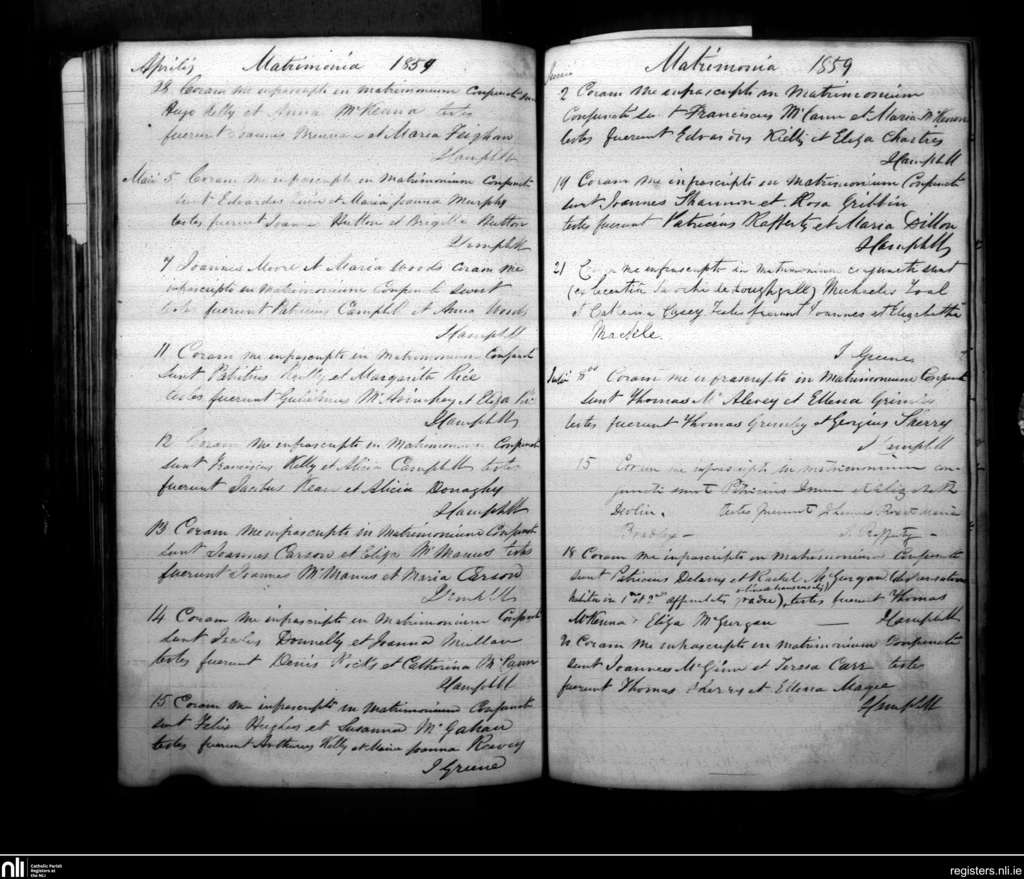 Aprilis Matrimonia 1859
28 Coram me infrascripto in matrimonium Conjuncti sunt
Hugo Kelly et Anna McKenna testes
fuerunt Joannes et Maria Feighan
J Campbell
Maii 5 Coram me infrascripto in matrimonium Conjuncti
sunt Edvardus et Maria Joanna Murphy
testes fuerunt Joannes Hutton et Brigitta Hutton
J Campbell
7 Joannes Moore et Maria Woods coram me
infrascripto in matrimonium Conjuncti sunt
testes fuerunt Patricius Campbell et Anna Woods
J Campbell
11 Coram me infrascripto in Matrimonium Conjuncti
sunt Patritius Reilly et Margarita Rice
testes fuerunt Gulielmus et Eliza
J Campbell
12 Coram me infrascripto in Matrimonium Conjuncti
sunt Franciscus Kelly et Alicia Campbell testes
fuerunt Jacobus Kean et Alicia Donaghy
J Campbell
13 Coram me infrascripto in Matrimonium Conjuncti
sunt Joannes Carson et Eliza McManus testes
fuerunt Joannes McManus et Maria Carson
J Campbell
14 Coram me infrascripto in Matrimonium Conjuncti
sunt Donnelly et Joanna Mullan
testes fuerunt Denis Hicks et Catherina McCann
J Campbell
15 Coram me infrascripto in Matrimonium Conjuncti
sunt Felix Hughes et Susanna McGahan
testes fuerunt Arthurus Kelly et Maria Joanna Reavey
J Greene
Junii Matrimonia 1859
2 Coram me infrascripto in matrimonium
Conjuncti sunt Franciscus McCann et Maria McKeown
testes fuerunt Edvardus Kielly et Eliza Chartres
J Campbell
19 Coram me infrascripto in matrimonium Conjuncti
sunt Joannes Shannon et Rosa Gribbin
testes fuerunt Patricius Rafferty et Maria Dillon
J Campbell
21 Coram me infrascripto in matrimonium conjuncti sunt
(ex licentia Parochi de Loughgall) Michaelis Toal
et Catherina Casey Testes fuerunt Joannes et Elizabetha
Mackle.
J Greene
Julii 8 Coram me infrascripto in matrimonium Conjuncti
sunt Thomas McAlevey et Ellena Grimley
testes fuerunt Thomas Grimley et Georgius Sherry
J Campbell
15 Coram me infrascripto in matrimonium con-
juncti sunt Patricius et Elizabeth
Devlin. Testes fuerunt Maria
Bradley - J. Rafferty -
18 Coram me infrascripto in matrimonium Conjuncti
sunt Patricius Delaney et Rachel McGurgan (dispensatione
habita in 1mo et 2do affinitatis gradu), testes fuerunt Thomas
McKenna et Eliza McGurgan — J Campbell
Coram me infrascripto in matrimonium Conjuncti
sunt Joannes McGinn et Teresa Carr testes
fuerunt Thomas Sherry et Ellena Magee
J Campbell
nli Catholic Parish
Registers at
the NLI
registers.nli.ie